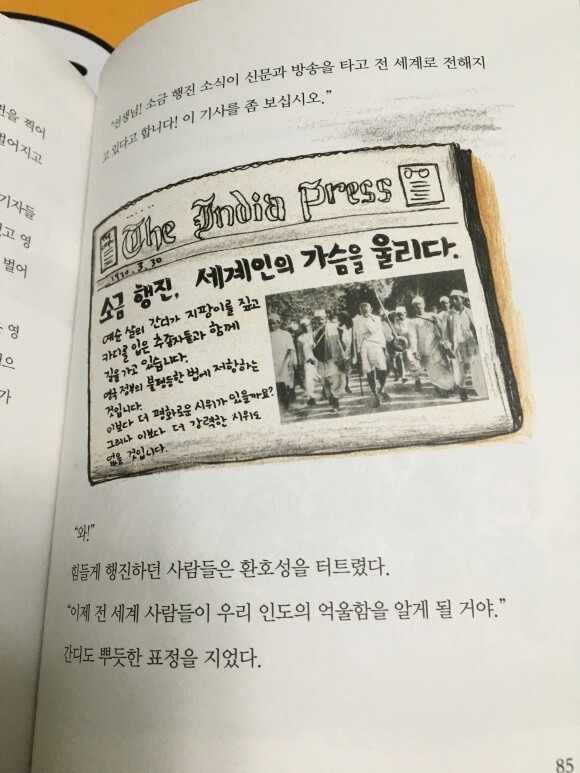 면을 찍어
벌어지고
기자들
고 영
벌어
영
으
가
"선생님! 소금 행진 소식이 신문과 방송을 타고 전 세계로 전해지
고 있다고 합니다! 이 기사를 좀 보십시오."
The India Press
1930. 3. 30
소금 행진, 세계인의 가슴을 울리다.
예순 살의 간디가 지팡이를 짚고
카디를 입은 추종자들과 함께
길을 가고 있습니다.
영국 정부의 불평등한 법에 저항하는
것입니다.
이보다 더 평화로운 시위가 있을까요?
그러나 이보다 더 강력한 시위도
없을 것입니다.
"와!"
힘들게 행진하던 사람들은 환호성을 터트렸다.
"이제 전 세계 사람들이 우리 인도의 억울함을 알게 될 거야."
간디도 뿌듯한 표정을 지었다.
85